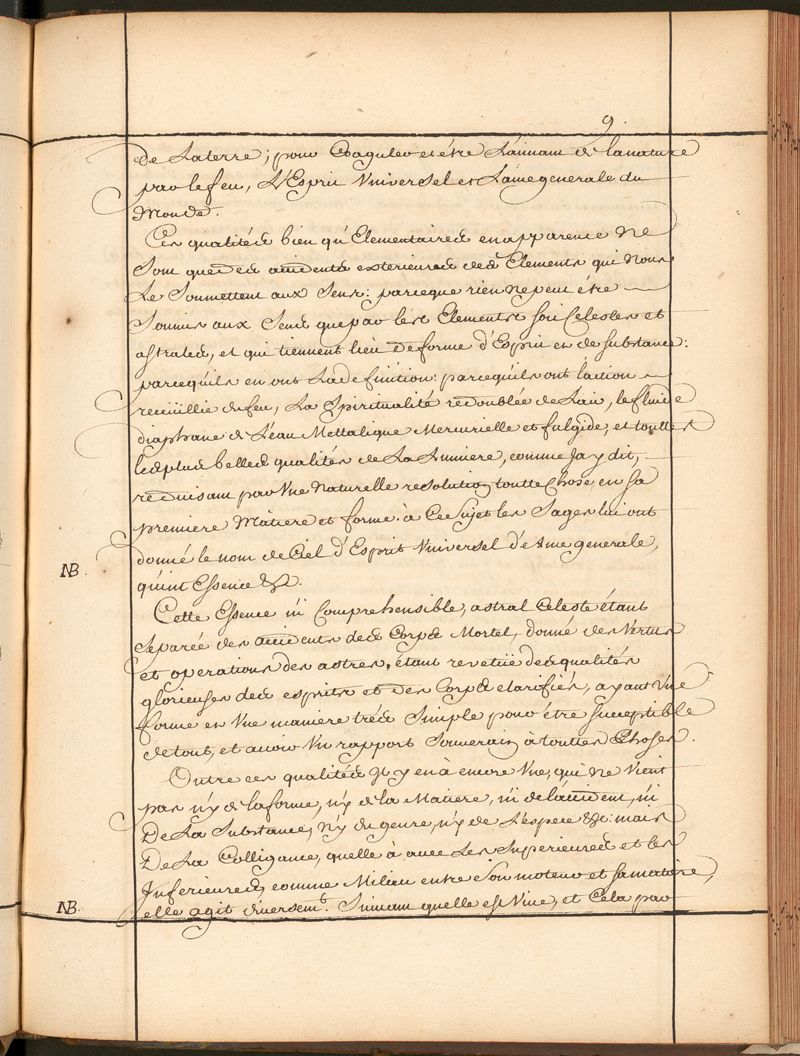 9.
de La terre; pour Coaguler et être L'aimant de la nature
par le feu, L'Esprit Vniversel et L'ame generale du
Monde.
Ces qualitéés bien qu'Elementaires en apparence ne
sont que des accidents exterieures des Elements qui nous
Le Soumettent aux Sens: parceque rien ne peut etre
Soumis aux Sens que par les Elements soit Celestes et
astrales, et qui tiennent lieu de forme d'Esprit et de substance:
parcequils en ont La definition: parcequils ont l'action
recüillie du feu, La Spiritualité redoublée de L'air, le fluide
diaphane de L'eau Mettalique Mercurielle et fulgide, et touttes
les plus belles qualités de La Lumiere, comme Jay dit,
reduisant par Vne Naturelle resolution toutte Chose en sa
premiere Matiere et forme. à Ce Sujet les Sages lui ont
NB.
donné le nom de Ciel d'Esprit Vniversel d'Ame generale,
quint Essence &c.
Cette Essence in Comprehensible, astral Celeste étant
Separée des accidents des Corps Mortel, donné des Vertus
et operations des astres, étant revetüe des qualités
glorieuses des esprits et des Corps clarifiés, ayant Vne
forme en Vne maniere trés Simple pour être susceptible
de tout, et avoir Vn rapport Souverain à touttes Choses.
Outre ces qualitéés Il y en à encore Vne, qui ne Vient
pas n'y de la forme, n'y de la Matiere, ni de l'accident, ni
De La Substance, n'y du genre, n'y de L'espece &c: mais
De La Colligance, quelle à avec Les Superieures et les
Inferieures, comme Milieu entre Son moteur et sa matiere,
NB.
elle agit diversemt. Suivant quelle est Vnie, et Cela par